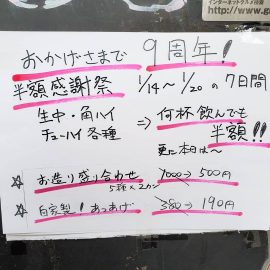 インターネットグルメ検索
http://www.g
おかげさまで 9周年!
半額感謝祭 1/14〜1/20の7日間
生中・角ハイ ⇒ 何杯飲んでも
チューハイ各種 半額!!
更に本日は〜
☆ お造り盛り合わせ 1000→500円
5種×2カン
☆ 自家製!あつあげ 380→190円